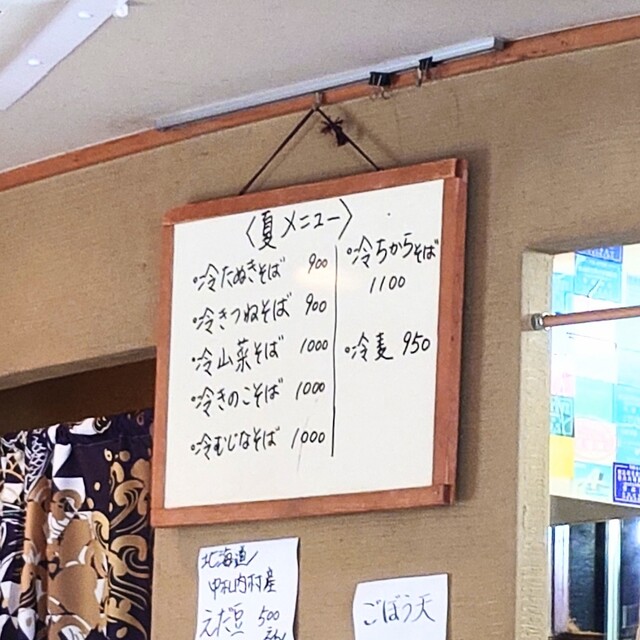 〈夏メニュー〉
・冷たぬきそば 900
・冷きつねそば 900
・冷山菜そば 1000
・冷きのこそば 1000
・冷むじなそば 1000
・冷ちからそば
1100
・冷麦 950
北海道/
中札内村産
えだ豆 500
ごぼう天